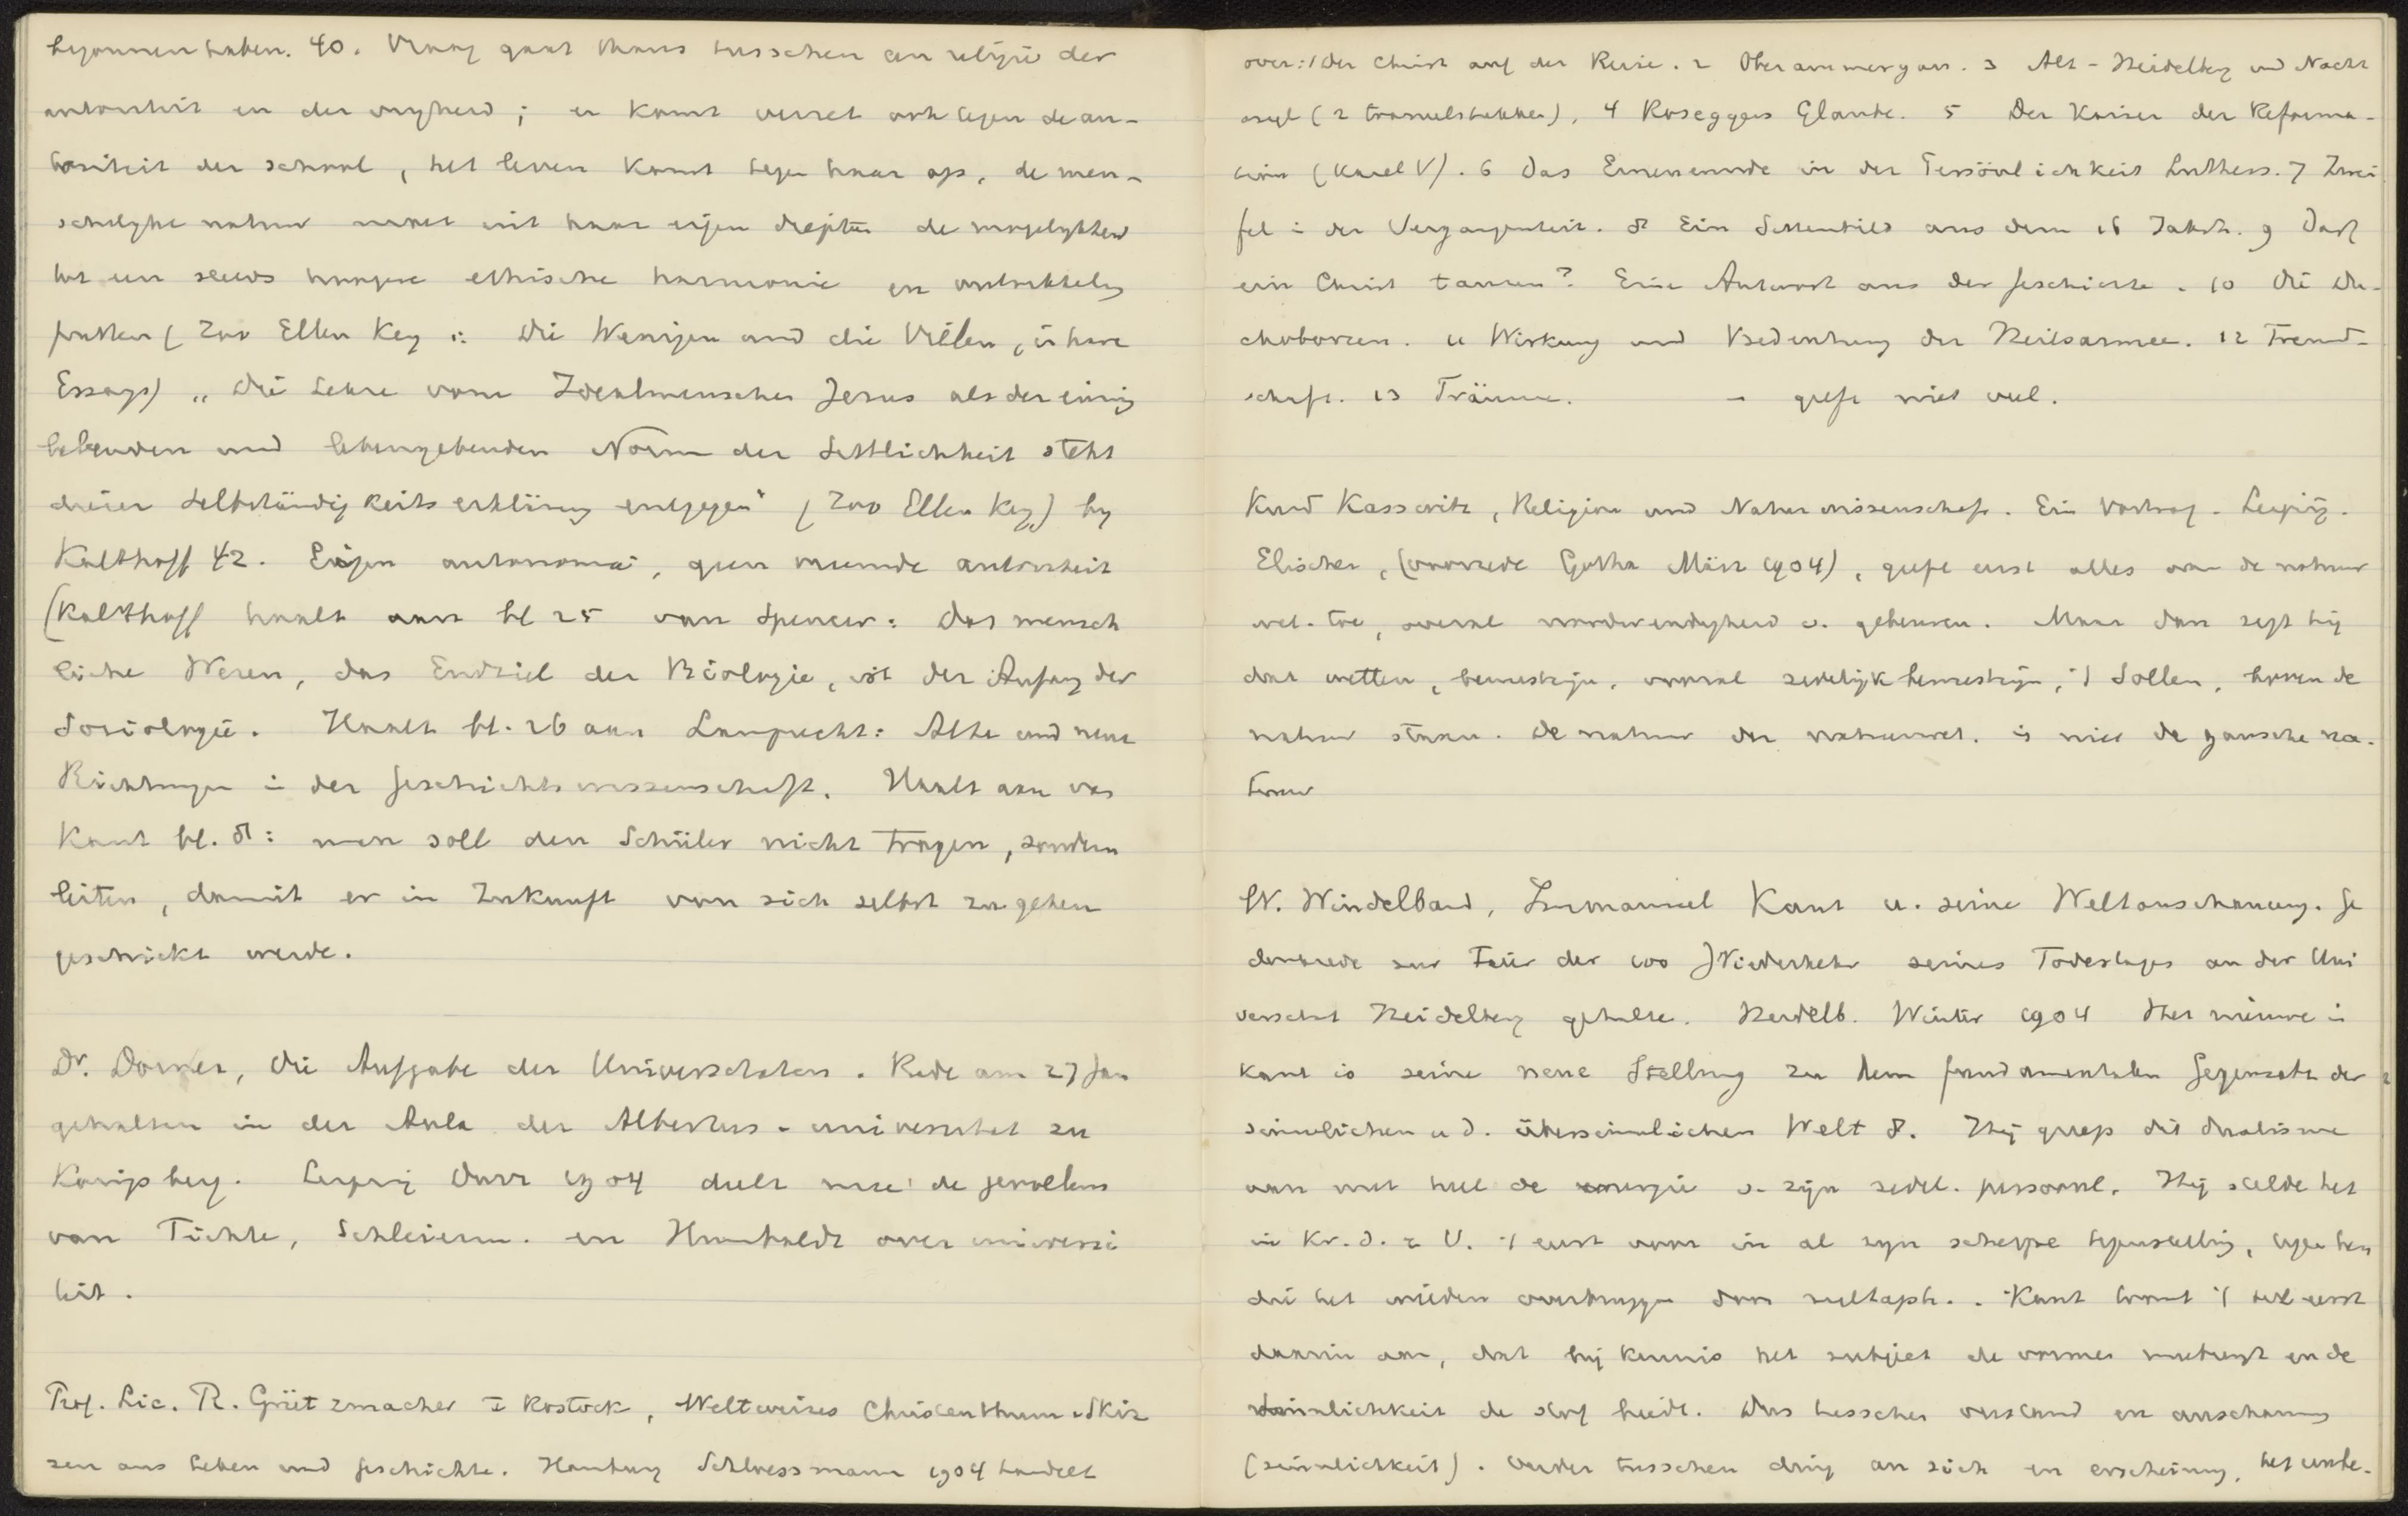 begonnen haben. 40. Vraag gaat thans tusschen een religie der
autoriteit en der vryheid; er komt verzet ook tegen de au-
toriteit der school, het leven komt tegen haar op, de men-
schelyke natuur moet uit haar eigen diepten de mogelykheid
tot een steeds hoogere ethische harmonie en ontwikkeling
putten (Zoo Ellen Key in: Die Wenigen und die Vielen, in hare
Essays) „Die Lehre vom Idealmenschen Jesus als der einzig
lebenden und lebengebenden Norm der Sittlichkeit steht
dieser Selbständigkeitserklärung entgegen" (Zoo Ellen Key) by
Kalthoff 42. Eigen autonomie, geen vreemde autoriteit
(Kalthoff haalt aan bl 25 van Spencer: Das mensch
liche Wesen, das Endziel der Biologie, ist der Anfang der
Sociologie. Haalt bl. 26 aan Lamprecht: Alte und neue
Richtungen in der Geschichtswissenschaft. Haalt aan van
Kant bl. 8: man soll den Schüler nicht tragen, sondern
leiten, damit er in Zukunft von sich selbst zu gehen
geschickt werde.
Dr. Dorner, Die Aufgabe der Universitäten. Rede am 27 Jan
gehalten in der Aula der Albertus-universitat zu
Konigsberg. Leipzig Durr 1904 deelt mee de gevoelens
van Fichte, Schleierm. en Humboldt over universi
teit.
Prof. Lic. R. Grützmacher I Rostock, Weltweites Christenthum. Skiz
zen aus Leben und Geschichte. Hamburg Schloessmann 1904 handelt
over: 1 Der Christ auf der Reise. 2 Oberammergau. 3 Alt-Heidelberg und Nacht
asyl (2 tooneelstukken), 4 Roseggers Glaube. 5 Der Kaiser der Reforma-
tion (Karel V). 6 Das Erneuernde in der Persönlichkeit Luthers. 7 Zwei
fel in der Vergangenheit. 8 Ein Sittenbild aus dem 16 Jahrh. 9 Darf
ein Christ tanzen? Eine Antwort aus der Geschichte. 10 Die Du-
choborzen. 11 Wirkung und Bedeutung der Heilsarmee. 12 Freund-
schaft. 13 Träume. – geeft niet veel.
Kurd Lasswitz, Religion und Naturwissenschaft. Ein Vortrag. Leipzig.
Elischer, (voorrede Gotha März 1904), geeft eerst alles aan de natuur
wet. toe, overal noodwendigheid v. gebeuren. Maar dan zegt hij
dat wetten, bewustzijn, vooral zedelijk bewustzijn, 't Sollen, boven de
natuur staan. De natuur der natuurwet. is niet de gansche na-
tuur
W. Windelband, Immanuel Kant u. seine Weltanschauung. Ge
denkrede zur Feier der 100 j Wiederkehr seines Todestages an der Uni
versität Heidelberg gehalten. Heidelb. Winter 1904 Het nieuwe in
Kant is seine neue Stellung zu dem fundamentalen Gegensatz der
sinnlichen u d. übersinnlichen Welt 8. Hij greep dit dualisme
aan met heel de energie v. zijn zedel. persoonl. Hij stelde het
in Kr. d. r. V. 't eerst voor in al zijn scherpe tegenstelling, tegen hen
die het wilden overbruggen door metaph.. Kant toont 't het eerst
daarin aan, dat bij kennis het subject de vormen meebrengt en de
Sinnlichkeit de stof biedt. Dus tusschen verstand en anschauung
(sinnlichkeit). Verder tusschen ding an sich en erscheinung, het onbe-